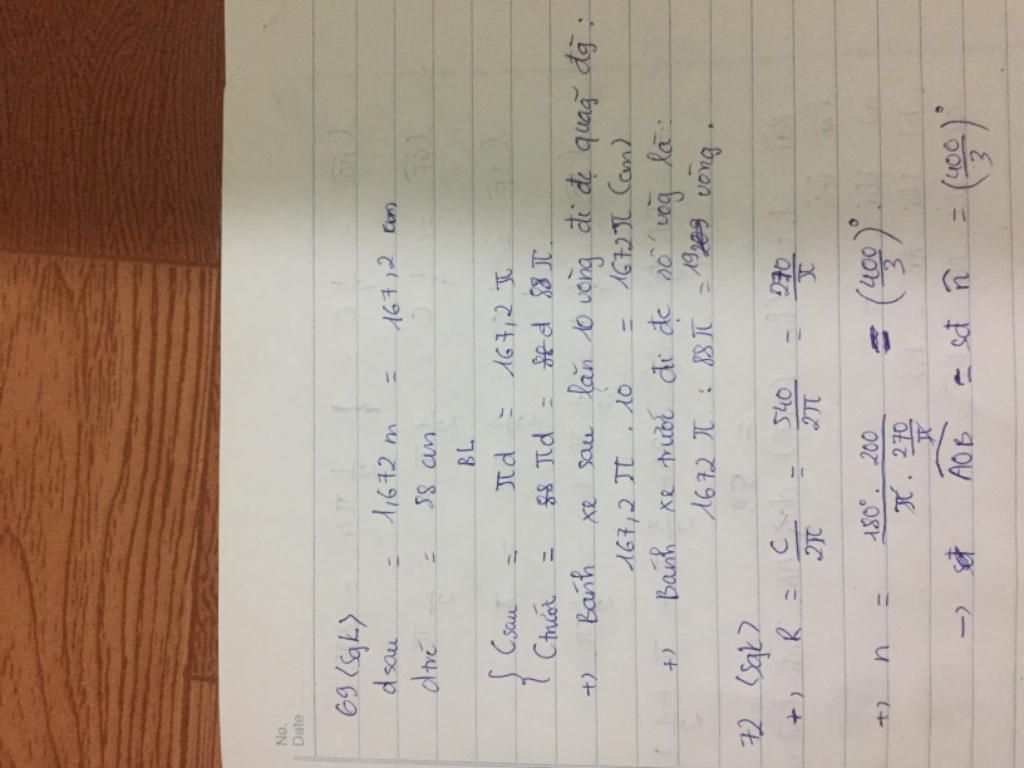 No.
Date
69 (Sgk)
d sau = 1,672 m = 167,2 cm
dtrc = 88 cm
BL
{ Csau = πd = 167,2 π
Ctrước = πd = 88 π.
+) Bánh xe sau lăn 10 vòng đi đc quãg đg:
167,2 π . 10 = 1672 π (cm)
+) Bánh xe trước đi đc số vòg là:
1672 π : 88 π = 19 vòng.
72 (sgk)
+) R = C/2π = 540/2π = 270/π
+) n = 180°. 200/π . 270/π = (400/3)°
→ sđ AOB = sđ n = (400/3)°